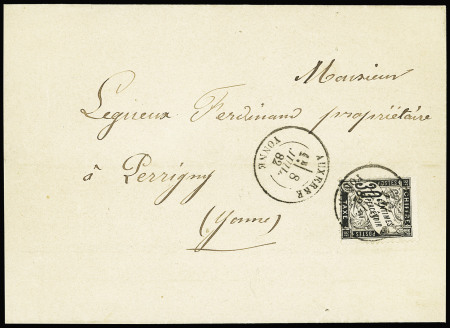 Monsieur
Lequeux Ferdinand propriétaire
à Perrigny
(Yonne)
AUXERRE
8
JUIL.
82
YONNE
CHIFFRE
30
CENTIMES
À PERCEVOIR
POSTES
TAXE